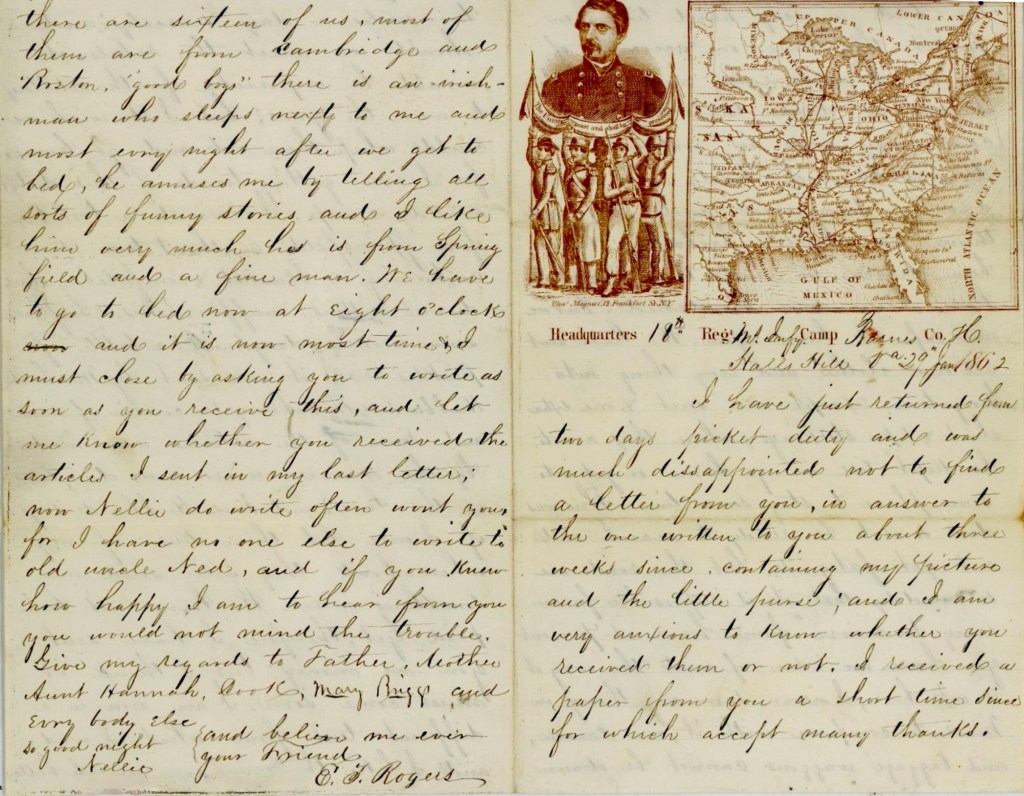 there are sixteen of us, most of
them are from Cambridge and
Boston, "good boys" there is an irish-
man who sleeps next to me and
most evry night after we get to
bed, he amuses me by telling all
sorts of funny stories, and I like
him very much he is from Spring
field and a fine man. We have
to go to bed now at Eight o'clock
and it is now most time & I
must close by asking you to write as
soon as you receive this, and let
me know whether you received the
articles I sent in my last letter;
now Nellie do write often wont you,
for I have no one else to write to
old uncle Ned, and if you knew
how happy I am to hear from you
you would not mind the trouble.
Give my regards to Father, Mother
Aunt Hannah, Cook, Mary Briggs and
Evry body Else
so good night
Nellie
and believe me ever
your Friend
E. T. Rogers
Chas Magnus, 12 Frankfort St. N.Y.
UPPER CANADA
LOWER CANADA
Montreal
Lake Superior
IOWA
OHIO
New York
JERSEY
ARKANSAS
NORTH ATLANTIC OCEAN
GULF OF
MEXICO
Headquarters 18th Regt Ms. Infy Camp Barnes Co. H.
Halls Hill Va. 29th Jan 1862
I have just returned from
two days picket duty and was
much dissappointed not to find
a letter from you, in answer to
the one written to you about three
weeks since, containing my picture
and the little purse; and I am
very anxious to know whether you
received them or not. I received a
paper from you a short time since
for which accept many thanks.